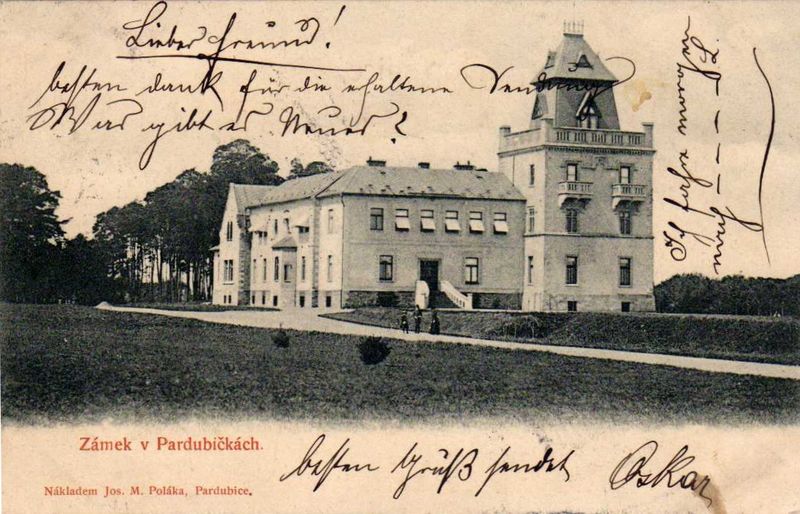 Lieber Freund!
besten dank für die erhaltene Sendung
Was gibt es Neues?
Ich fahre morgen
nach
Zámek v Pardubičkách.
besten Gruß sendet Oskar
Nákladem Jos. M. Poláka, Pardubice.